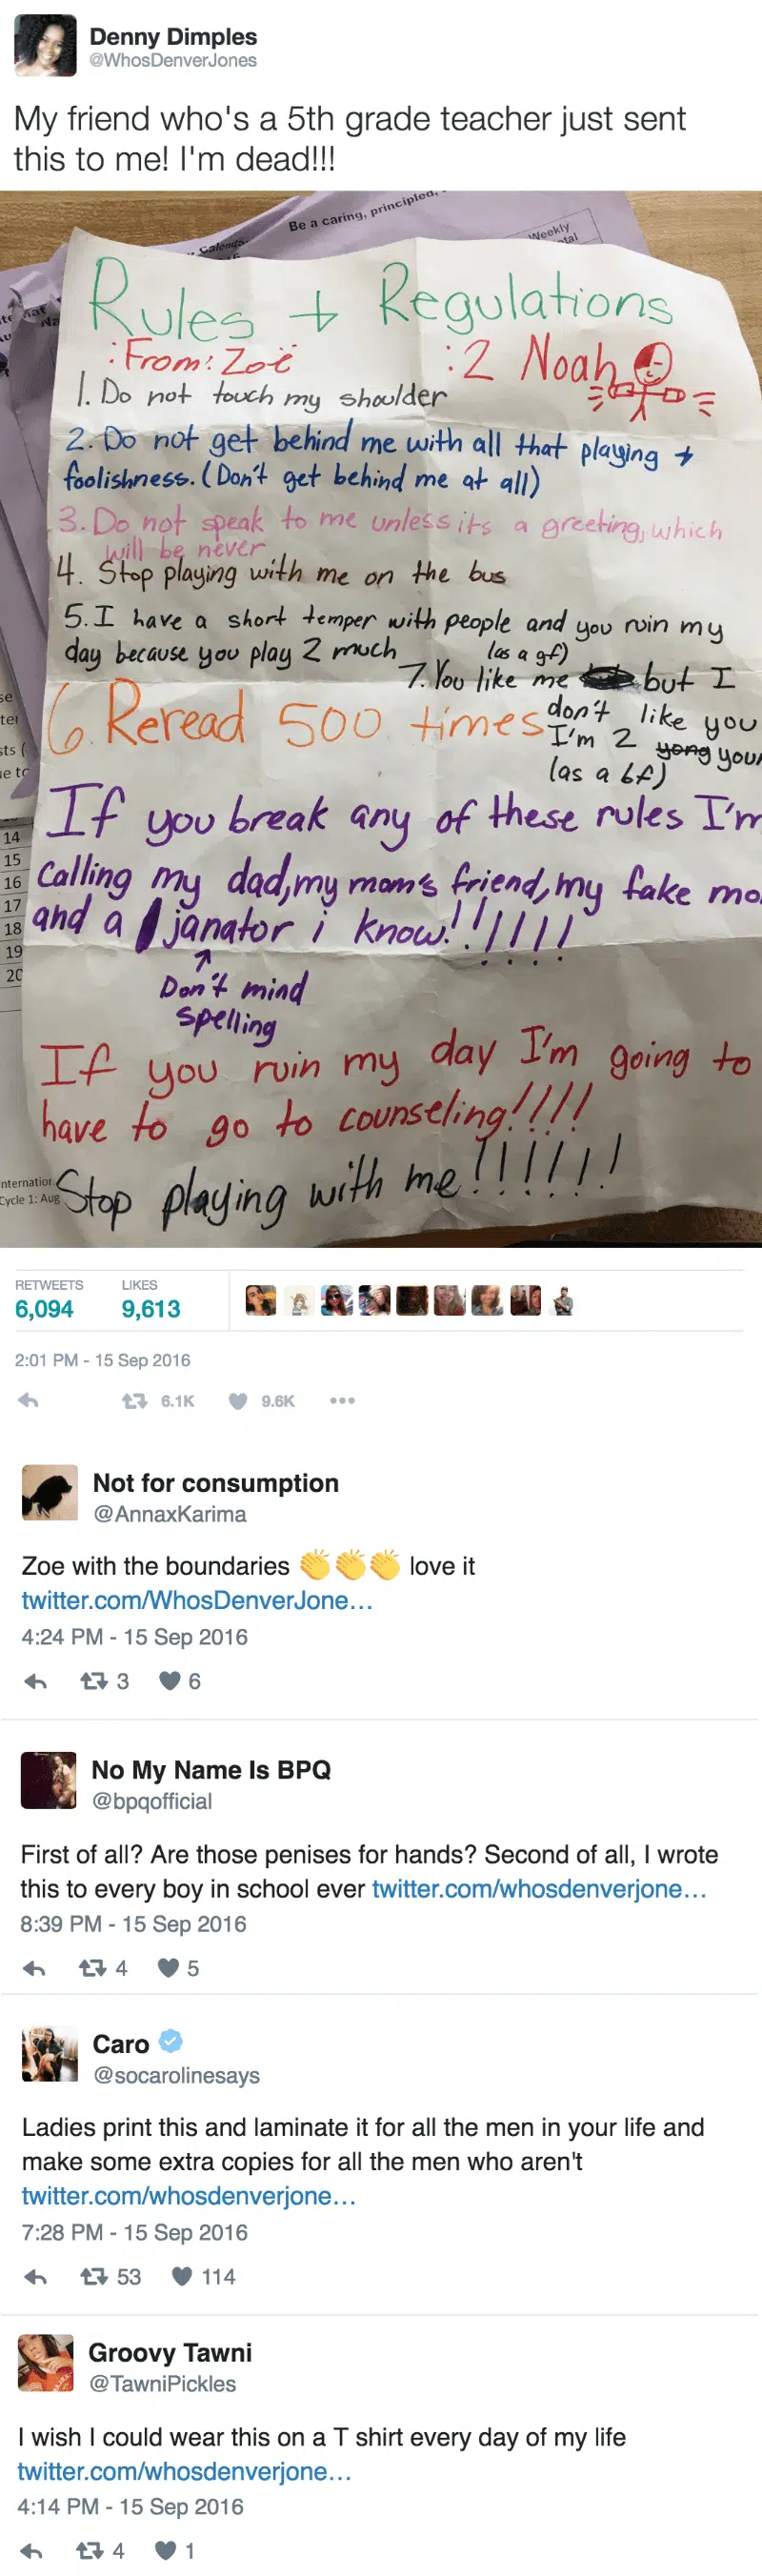 Denny Dimples
@WhosDenverJones
My friend who's a 5th grade teacher just sent
this to me! I'm dead!!!
Be a caring, principled,
Calenda
Weekly
Rules + Regulations
:From: Zoë :2 Noah
1. Do not touch my shoulder
2. Do not get behind me with all that playing +
foolishness. (Don't get behind me at all)
3. Do not speak to me unless its a greeting, which
will be never
4. Stop playing with me on the bus
5. I have a short temper with people and you ruin my
day because you play 2 much
(as a gf)
7. You like me but I
don't like you
6. Reread 500 times
I'm 2 yong your
(as a bf)
If you break any of these rules I'm
Calling my dad, my mom's friend, my fake mo
and a janator i know!!!!!!!
Don't mind
spelling
If you ruin my day I'm going to
have to go to counseling!!!!
Stop playing with me!!!!!!!
14
15
16
17
18
19
20
Cycle 1: Aug
RETWEETS LIKES
6,094 9,613
2:01 PM - 15 Sep 2016
6.1K 9.6K
Not for consumption
@AnnaxKarima
Zoe with the boundaries 👏👏👏 love it
twitter.com/WhosDenverJone…
4:24 PM - 15 Sep 2016
3 6
No My Name Is BPQ
@bpqofficial
First of all? Are those penises for hands? Second of all, I wrote
this to every boy in school ever twitter.com/whosdenverjone…
8:39 PM - 15 Sep 2016
4 5
Caro
@socarolinesays
Ladies print this and laminate it for all the men in your life and
make some extra copies for all the men who aren't
twitter.com/whosdenverjone…
7:28 PM - 15 Sep 2016
53 114
Groovy Tawni
@TawniPickles
I wish I could wear this on a T shirt every day of my life
twitter.com/whosdenverjone…
4:14 PM - 15 Sep 2016
4 1